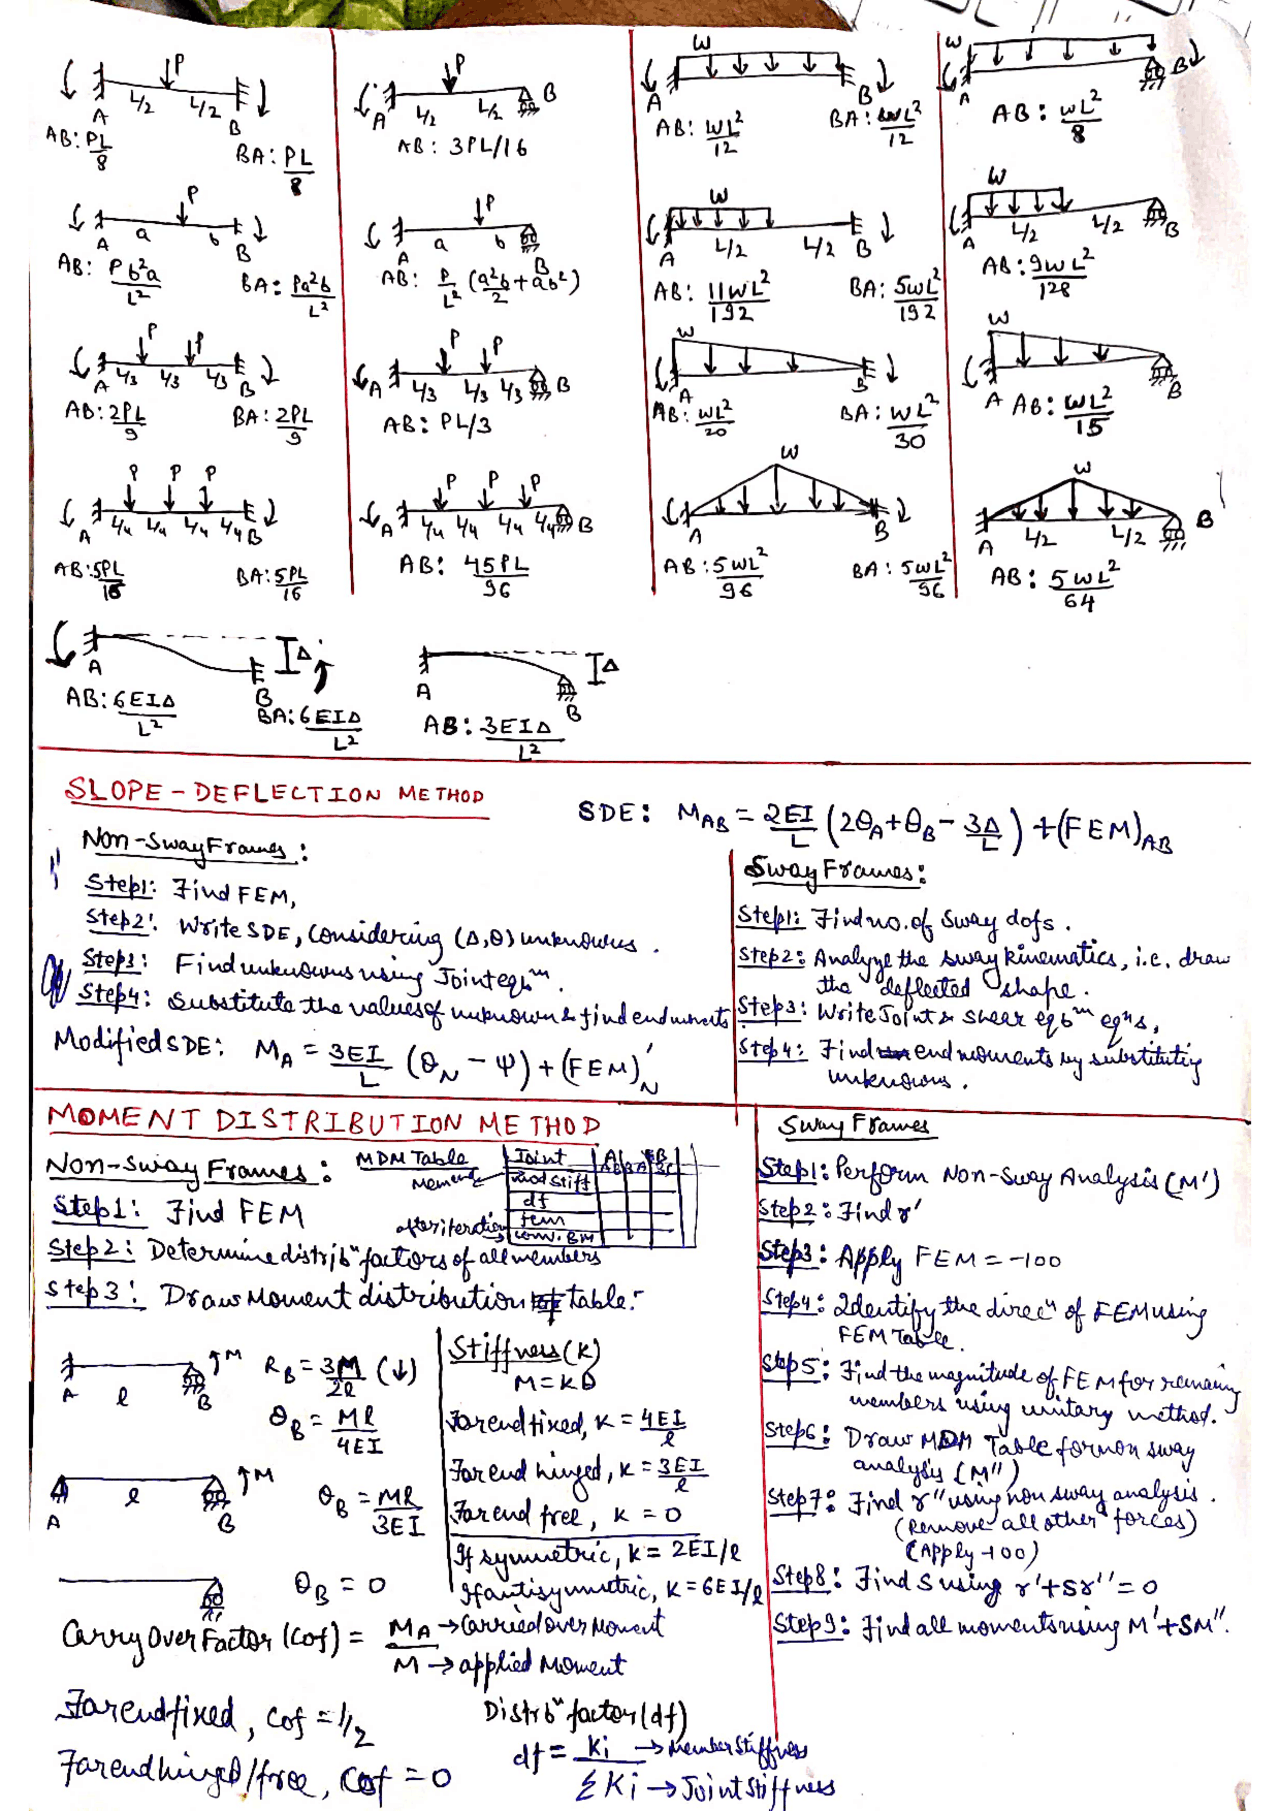 P
L/2 L/2
A B
AB: PL/8
BA: PL/8
P
L/2 L/2
A B
AB: 3PL/16
W
A B
AB: WL²/12
BA: WL²/12
W
A B
AB: WL²/8
P
a b
A B
AB: Pb²a/L²
BA: Pa²b/L²
P
a b
A B
AB: P/L² (a²b/2 + ab²)
W
L/2 L/2
A B
AB: 11WL²/192
BA: 5WL²/192
W
L/2 L/2
A B
AB: 9WL²/128
P P
L/3 L/3 L/3
A B
AB: 2PL/9
BA: 2PL/9
P P
L/3 L/3 L/3
A B
AB: PL/3
W
A B
AB: WL²/20
BA: WL²/30
W
A B
AB: WL²/15
P P P
L/4 L/4 L/4 L/4
A B
AB: 5PL/16
BA: 5PL/16
P P P
L/4 L/4 L/4 L/4
A B
AB: 45PL/96
W
A B
AB: 5WL²/96
BA: 5WL²/96
W
L/2 L/2
A B
AB: 5WL²/64
A B Δ
AB: 6EIΔ/L²
BA: 6EIΔ/L²
A B Δ
AB: 3EIΔ/L²
SLOPE-DEFLECTION METHOD
SDE: M_AB = 2EI/L (2θ_A + θ_B - 3Δ/L) + (FEM)_AB
Non-Sway Frames:
Step1: Find FEM,
Step2: Write SDE, considering (Δ,θ) unknowns.
Step3: Find unknowns using Joint eqbᵐ.
Step4: Substitute the values of unknown & find end moments
Modified SDE: M_A = 3EI/L (θ_N - ψ) + (FEM)'_N
Sway Frames:
Step1: Find no. of Sway dofs.
Step2: Analyze the sway kinematics, i.e. draw
the deflected shape.
Step3: Write Joint & shear eqbᵐ eqⁿs,
Step4: Find end moments by substituting
unknowns.
MOMENT DISTRIBUTION METHOD
Non-Sway Frames:
MDM Table
Member
after iteration
Joint A B
AB BA BC
mod stiff
df
fem
conv. BM
Step1: Find FEM
Step2: Determine distribⁿ factors of all members
Step3: Draw Moment distribution table.
A l B M
R_B = 3M/2l (↓)
θ_B = Ml/4EI
A l B M
θ_B = Ml/3EI
θ_B = 0
Stiffness (K)
M = Kθ
Far end fixed, K = 4EI/l
Far end hinged, K = 3EI/l
Far end free, K = 0
If symmetric, K = 2EI/l
If antisymmetric, K = 6EI/l
Carry Over Factor (Cof) = M_A → Carried over Moment
M → applied Moment
Far end fixed, Cof = 1/2
Far end hinged/free, Cof = 0
Distribⁿ factor (df)
df = Ki → Member Stiffness
ΣKi → Joint Stiffness
Sway Frames
Step1: Perform Non-Sway Analysis (M')
Step2: Find r'
Step3: Apply FEM = -100
Step4: Identify the direcⁿ of FEM using
FEM Table.
Step5: Find the magnitude of FEM for remaining
members using unitary method.
Step6: Draw MDM Table for non sway
analysis (M'')
Step7: Find r'' using non sway analysis.
(Remove all other forces)
(Apply -100)
Step8: Find S using r' + Sr'' = 0
Step9: Find all moments using M' + SM''.